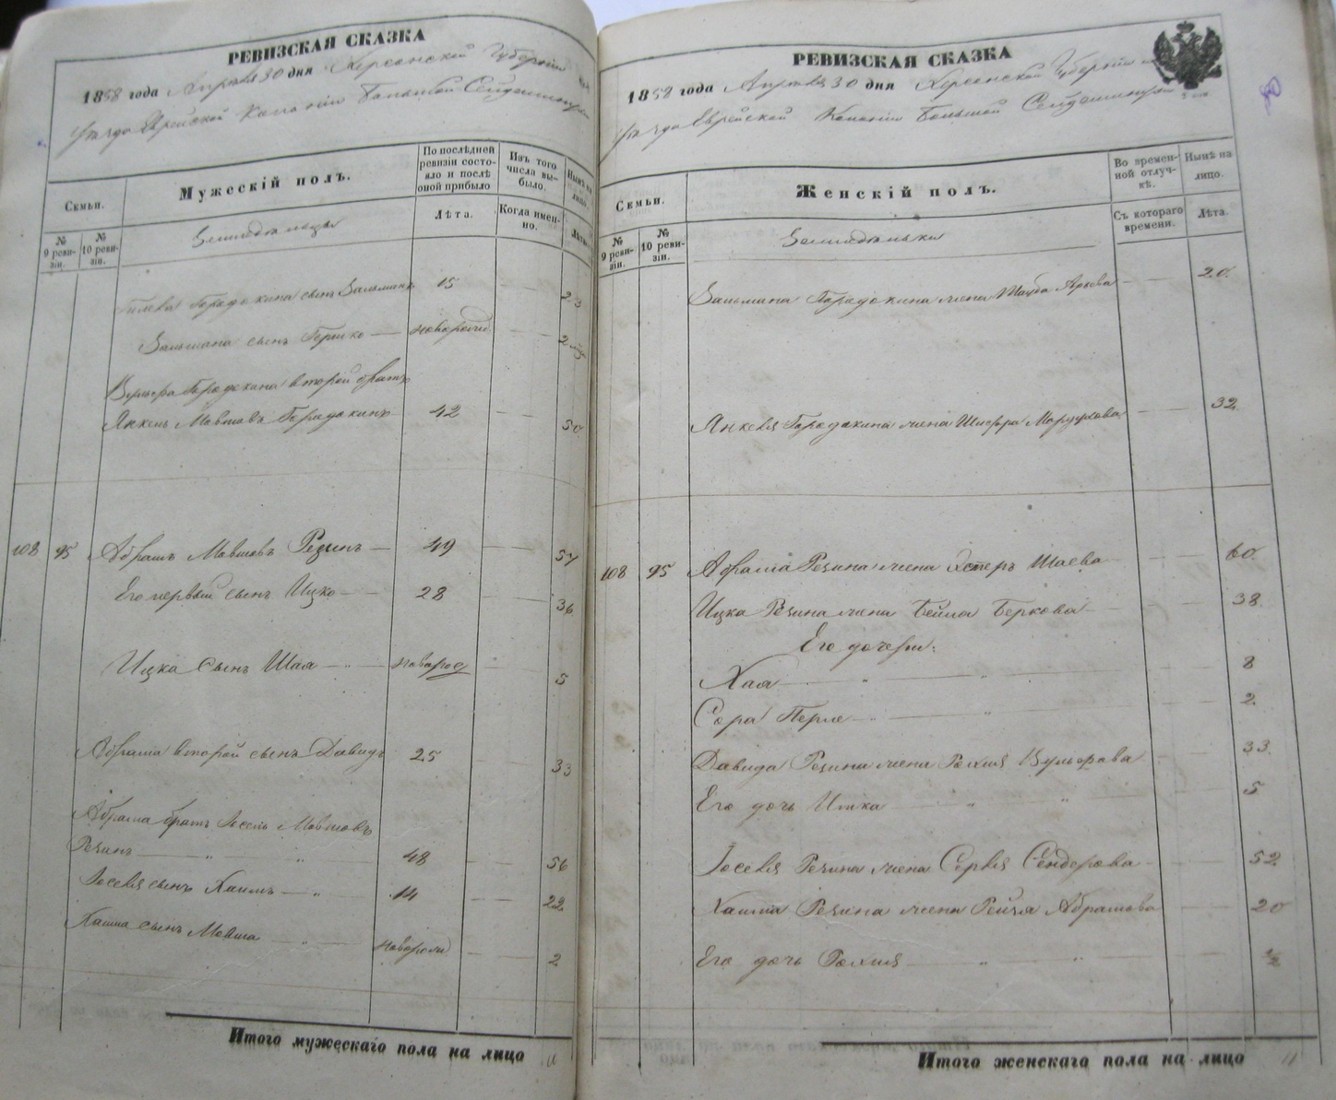 РЕВИЗСКАЯ СКАЗКА
1858 года Апреля 30 дня Херсонской Губернии
уезда Еврейской Колонии Большой Сейдеминухи
Семьи.
Мужескій полъ.
По последней ревизіи состояло и послѣ оной прибыло
Изъ того числа выбыло.
Нынѣ на лицо.
№ 9 ревизіи.
№ 10 ревизіи.
Лѣта.
Когда именно.
Лѣта.
Городокина сынъ Залманъ 15 23
Залмана сынъ Гершко новорожд 2
Вульфа Городокина второй братъ
Янкель Мовшовъ Городокинъ 42 50
108 95 Абрамъ Мовшовъ Резинъ 49 57
Его первый сынъ Ицко 28 36
Ицка сынъ Шая новорож 5
Абрама второй сынъ Давидъ 25 33
Абрама братъ Іосель Мовшовъ
Резинъ 48 56
Іоселя сынъ Хаимъ 14 22
Хаима сынъ Мовша новорожд 2
Итого мужескаго пола на лицо 11
РЕВИЗСКАЯ СКАЗКА
1858 года Апреля 30 дня Херсонской Губерніи
уезда Еврейской Колоніи Большой Сейдеминухи
Семьи.
Женскій полъ.
Во временной отлучкѣ.
Нынѣ на лицо.
№ 9 ревизіи.
№ 10 ревизіи.
Съ котораго времени.
Лѣта.
Залмана Городокина жена 20
Янкеля Городокина жена Шифра 32
108 95 Абрама Резина жена Естеръ Шаева 60
Ицка Резина жена Бейла Беркова 38
Его дочери:
Хая 8
Сора Перле 2
Давида Резина жена Рохля Вульфова 33
Его дочь Итка 5
Іоселя Резина жена Серля Сендерова 52
Хаима Резина жена Рейзя Абрамова 20
Его дочь Рохля 1/2
Итого женскаго пола на лицо 11